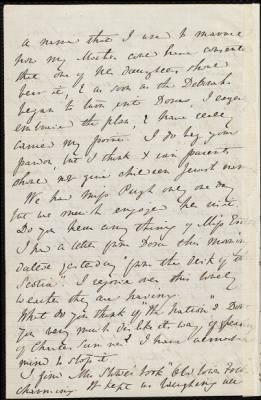 a name that I use to marvel
how my Mother could have consented
that one of her daughters should
bear it, & as soon as the Deborah
began to turn into Doras, I
embrace the plan, & have
carried my point. I do beg your
pardon, but I think X ian parents
should not give children Jewish names
We had Miss Pugh only one day
but we much enjoyed her visit.
Do you hear any thing of Miss
I had a letter from Dora this morning
dated yesterday "from the deck of the
Scotia". I rejoice over this lovely
weather they are having.
What do you think of "the Nation"? Don't
you very much dislike its way of
of Charles Sumner? I have almost a
mind to stop it.
I find Mrs Stowe's book "Old Town
charming. It kept us laughing all